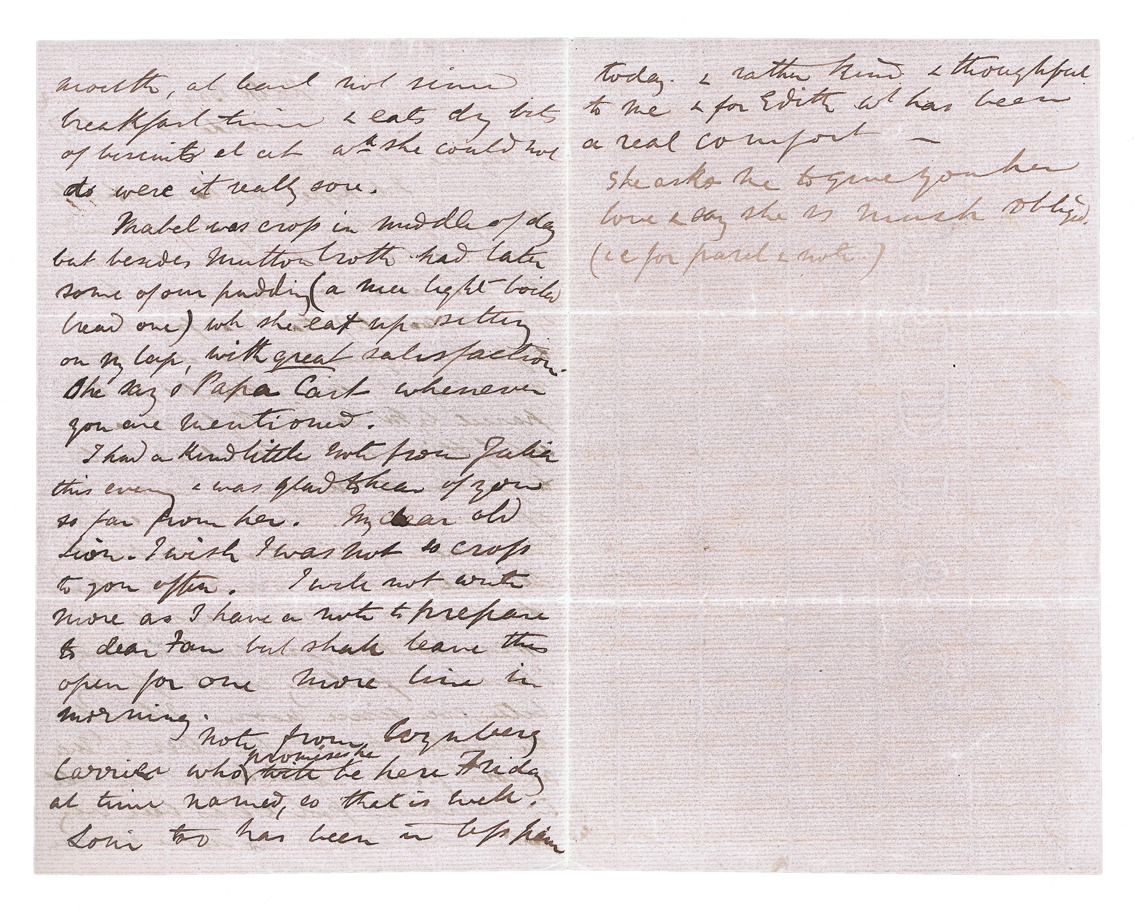 mouth, at least not since
breakfast time & eats dry bits
of biscuits et cet wh she could not
do were it really sore.
Mabel was cross in middle of day
but besides Mutton broth had later
some of our pudding (a nice light boiled
bread one) wh she eat up sitting
on my lap, with great satisfaction.
She says Papa Cart whenever
you are mentioned.
I had a kind little note from Julia
this eveng & was glad to hear of you
so far from her. My dear old
Lion. I wish I was not so cross
to you often. I will not write
more as I have a note to prepare
to dear Fan but shall leave this
open for one more line in
morning.
Note from
Carrier who promises he will be here Friday
at time named, so that is well.
too has been in less pain
today. & rather kind & thoughtful
to me & for Edith wh has been
a real comfort —
She asks me to give you her
love & say she is much obliged.
(ie for parcel & note)